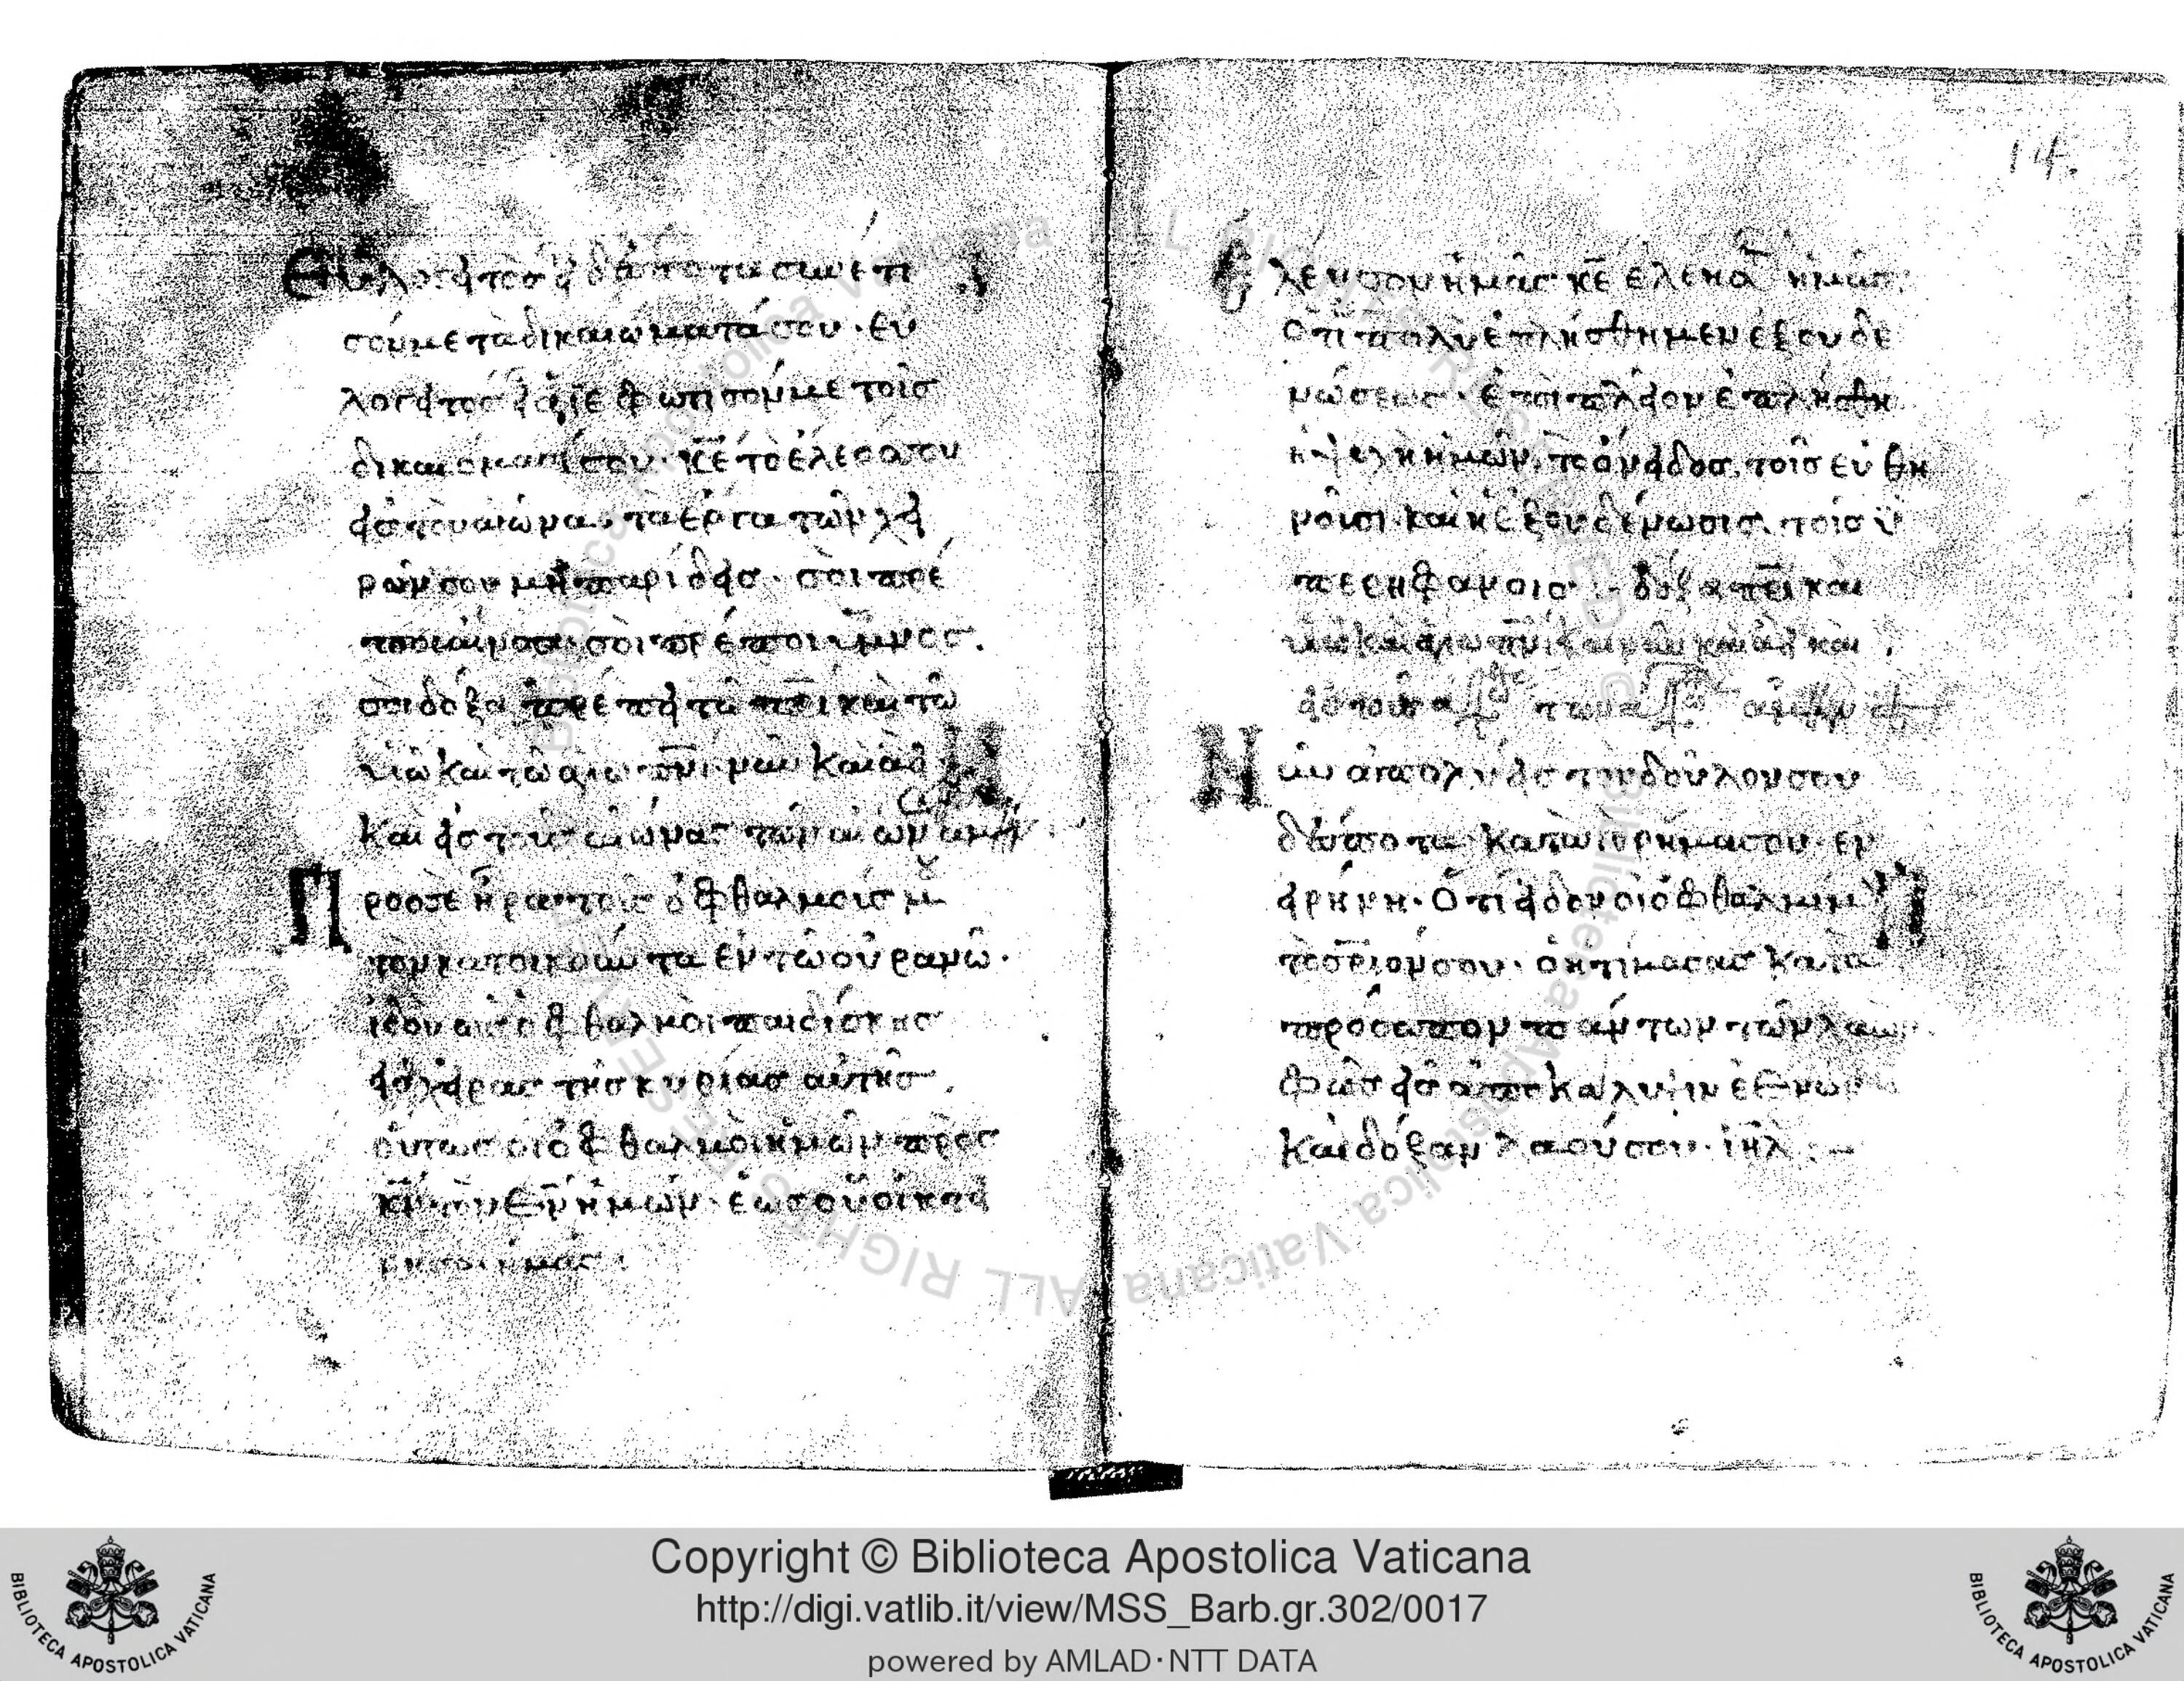 Εὐλογητὸς εἶ δέσποτα συνέτι
σόν με τὰ δικαιώματά σου · εὐ
λογητὸς εἶ ἅγιε φώτισόν με τοῖς
δικαιόμασί σου · κε τὸ ἔλεός σου
εἰς τὸν αἰῶνα · τὰ ἔργα τῶν χει
ρῶν σου μὴ παρίδεις · σοὶ πρέ
σοὶ πρέποι ὕμνος ·
σοὶ δόξα πρέπει τῶ πρι καὶ τῶ
υἱῶ καὶ τῶ ἁγίω πνι νῦν καὶ ἀεὶ
και εἰς τους αἰῶνας τῶν αἰων αμήν
Προσὲ ἦρα τοὺς ὀφθαλμούς μου
τὸν κατοικοῦντα ἐν τῶ οὐρανῶ ·
ὀφθαλμοὶ παιδίσκης
εἰς χεῖρας τῆς κυρίας αὐτῆς
οὕτως οἱ ὀφθαλμοὶ ἡμῶν πρὸς
κν τὸν θν ἡμῶν · ἕως οὗ οἰκτει
ρήσαι ἡμᾶς :
14.
Ελέησον ἡμᾶς κε ἐλέησον ἡμᾶς
Ὅτι πολὺ ἐπλήσθημεν ἐξουδε
νώσεως · ἐπὶ πλεῖον ἐπλήσθη
ἡ ψυχὴ ἡμῶν · τὸ ὄνειδος τοῖς εὐθη
νοῦσι · καὶ ἡ ἐξουδένωσις τοῖς ὑ
περηφάνοις :- δόξα πρι καὶ
υἱῶ καὶ ἁγίω πνι καὶ νῦν καὶ ἀεὶ καὶ
Νῦν ἀπολύεις τὸν δοῦλον σου
δέσποτα · κατὰ τὸ ρῆμα σου · ἐν
εἰρήνη · Ὅτι εἶδον οἱ ὀφθαλμοί μου
τὸ σριόν σου · ὃ ἡτίμασας κατὰ
πρόσωπον πάντων τῶν λαῶν ·
Φῶς εἰς ἀποκάλυψιν ἐθνῶν
Καὶ δόξαν λαοῦ σου · ιηλ : -
Copyright © Biblioteca Apostolica Vaticana
http://digi.vatlib.it/view/MSS_Barb.gr.302/0017
powered by AMLAD·NTT DATA
BIBLIOTECA APOSTOLICA VATICANA
BIBLIOTECA APOSTOLICA VATICANA